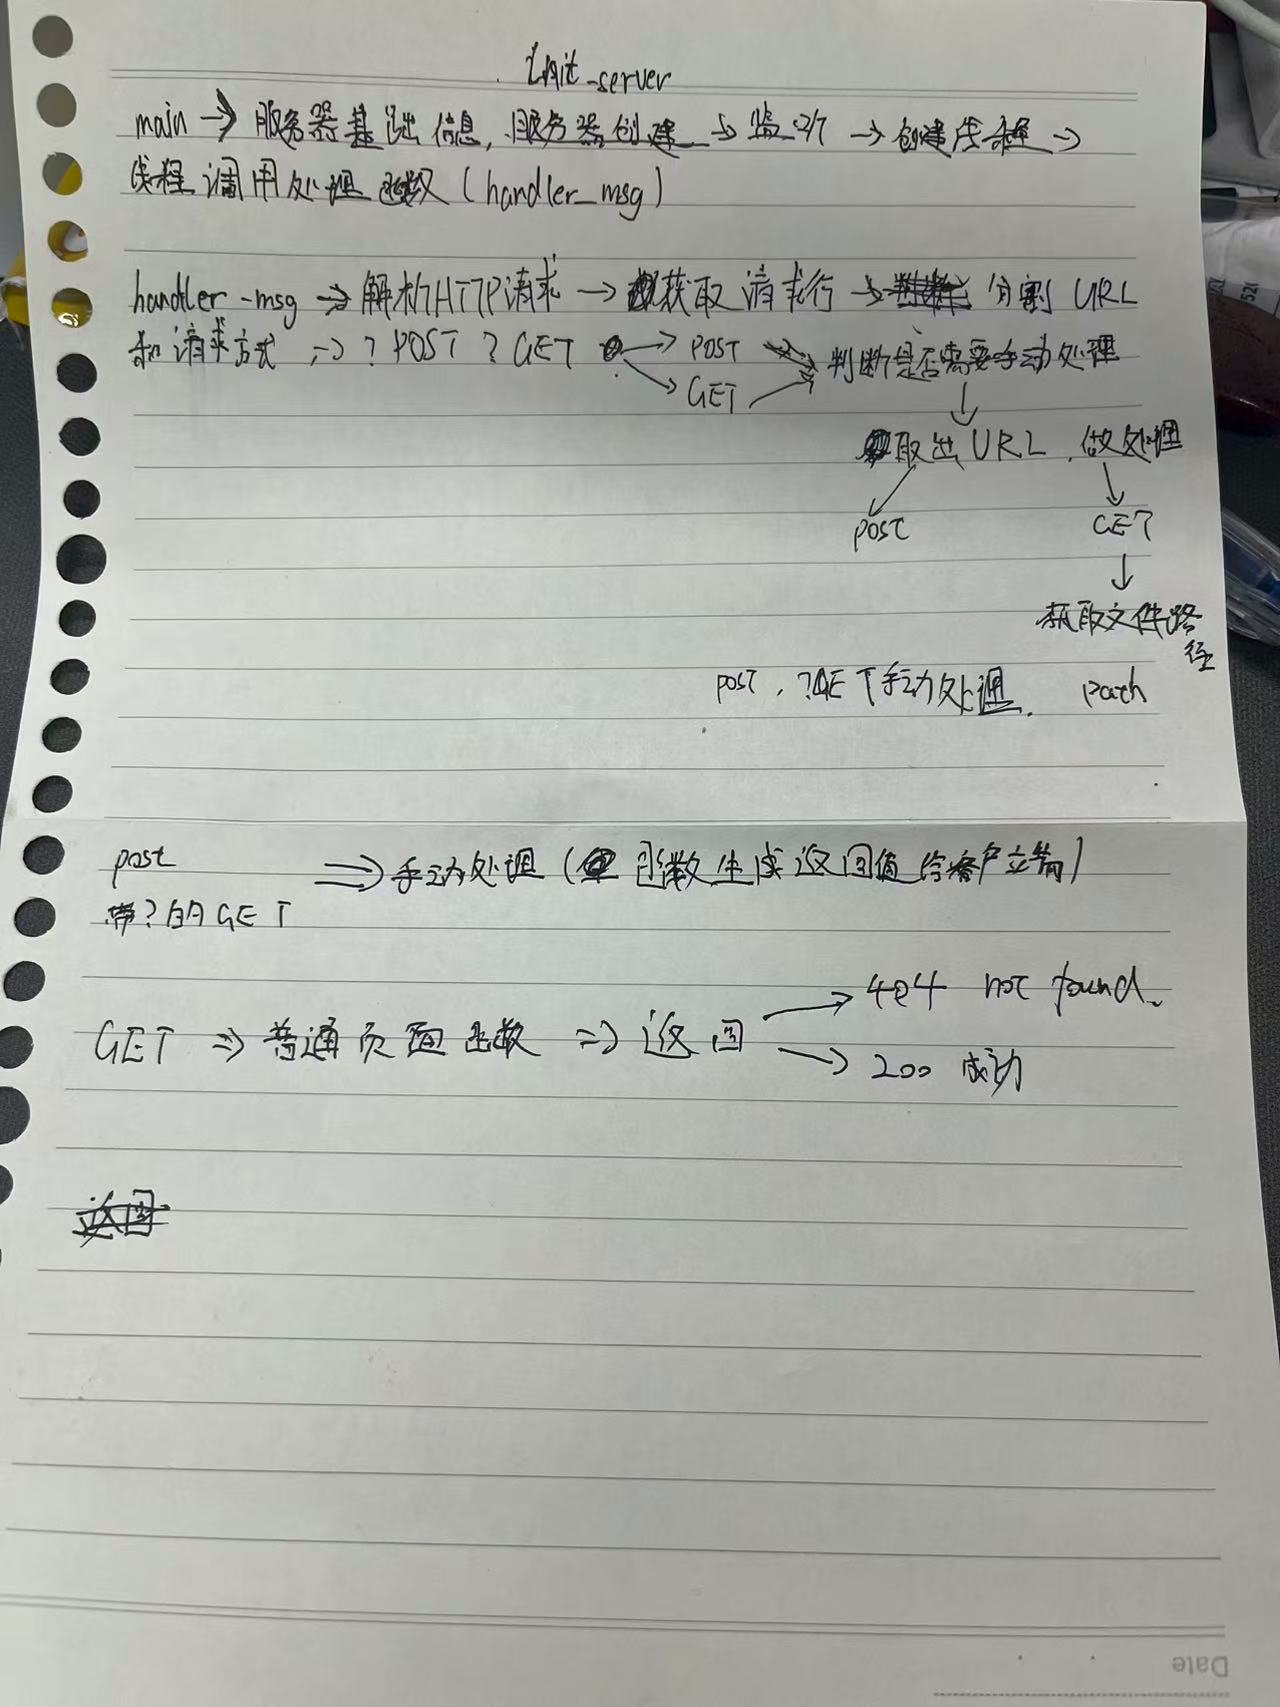 init_server
main → 服务器基础信息, 服务器创建 → 监听 → 创建线程 →
线程调用处理函数 (handler_msg)
handler-msg → 解析HTTP请求 → 获取请求行 → 分割 URL
和请求方式 → ? POST ? GET → POST → 判断是否需要手动处理
→ GET
↓
取出URL, 做处理
POST GET
↓
获取文件路
径
post, ?GET手动处理. path
post ⇒ 手动处理 (函数生成返回值给客户端)
带?的GET
→ 404 not found.
GET ⇒ 普通页面函数 ⇒ 返回
→ 200 成功
Date